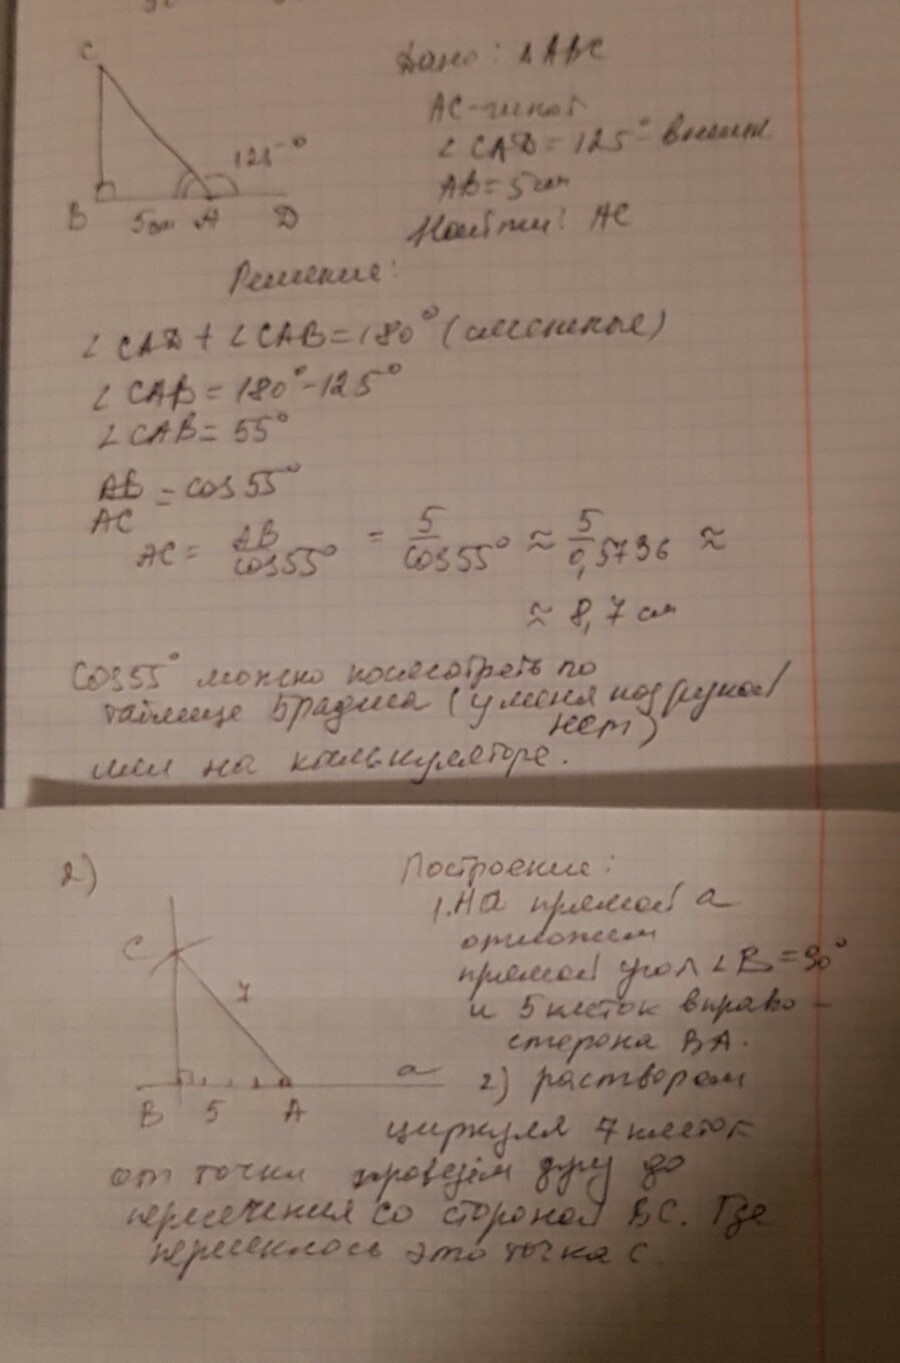 C
Дано: ΔABC
AC-гипот
∠CAD = 125° - внешн
125°
AB = 5 см
B 5см A D
Найти: AC
Решение:
∠CAD + ∠CAB = 180° (смежные)
∠CAB = 180° - 125°
∠CAB = 55°
AB/AC = cos 55°
AC = AB/cos55° = 5/cos55° ≈ 5/0,5736 ≈
≈ 8,7 см
Cos55° можно посмотреть по
таблице Брадиса (у меня под рукой
нет)
или на калькуляторе.
2)
Построение:
1. На прямой a
отложим
C
прямой угол ∠B = 90°
7
и 5 клеток вправо -
сторона BA.
a
2) раствором
B 5 A
циркуля 7 клеток
от точки проведём дугу до
пересечения со стороной BC. Где
пересеклось это точка C.